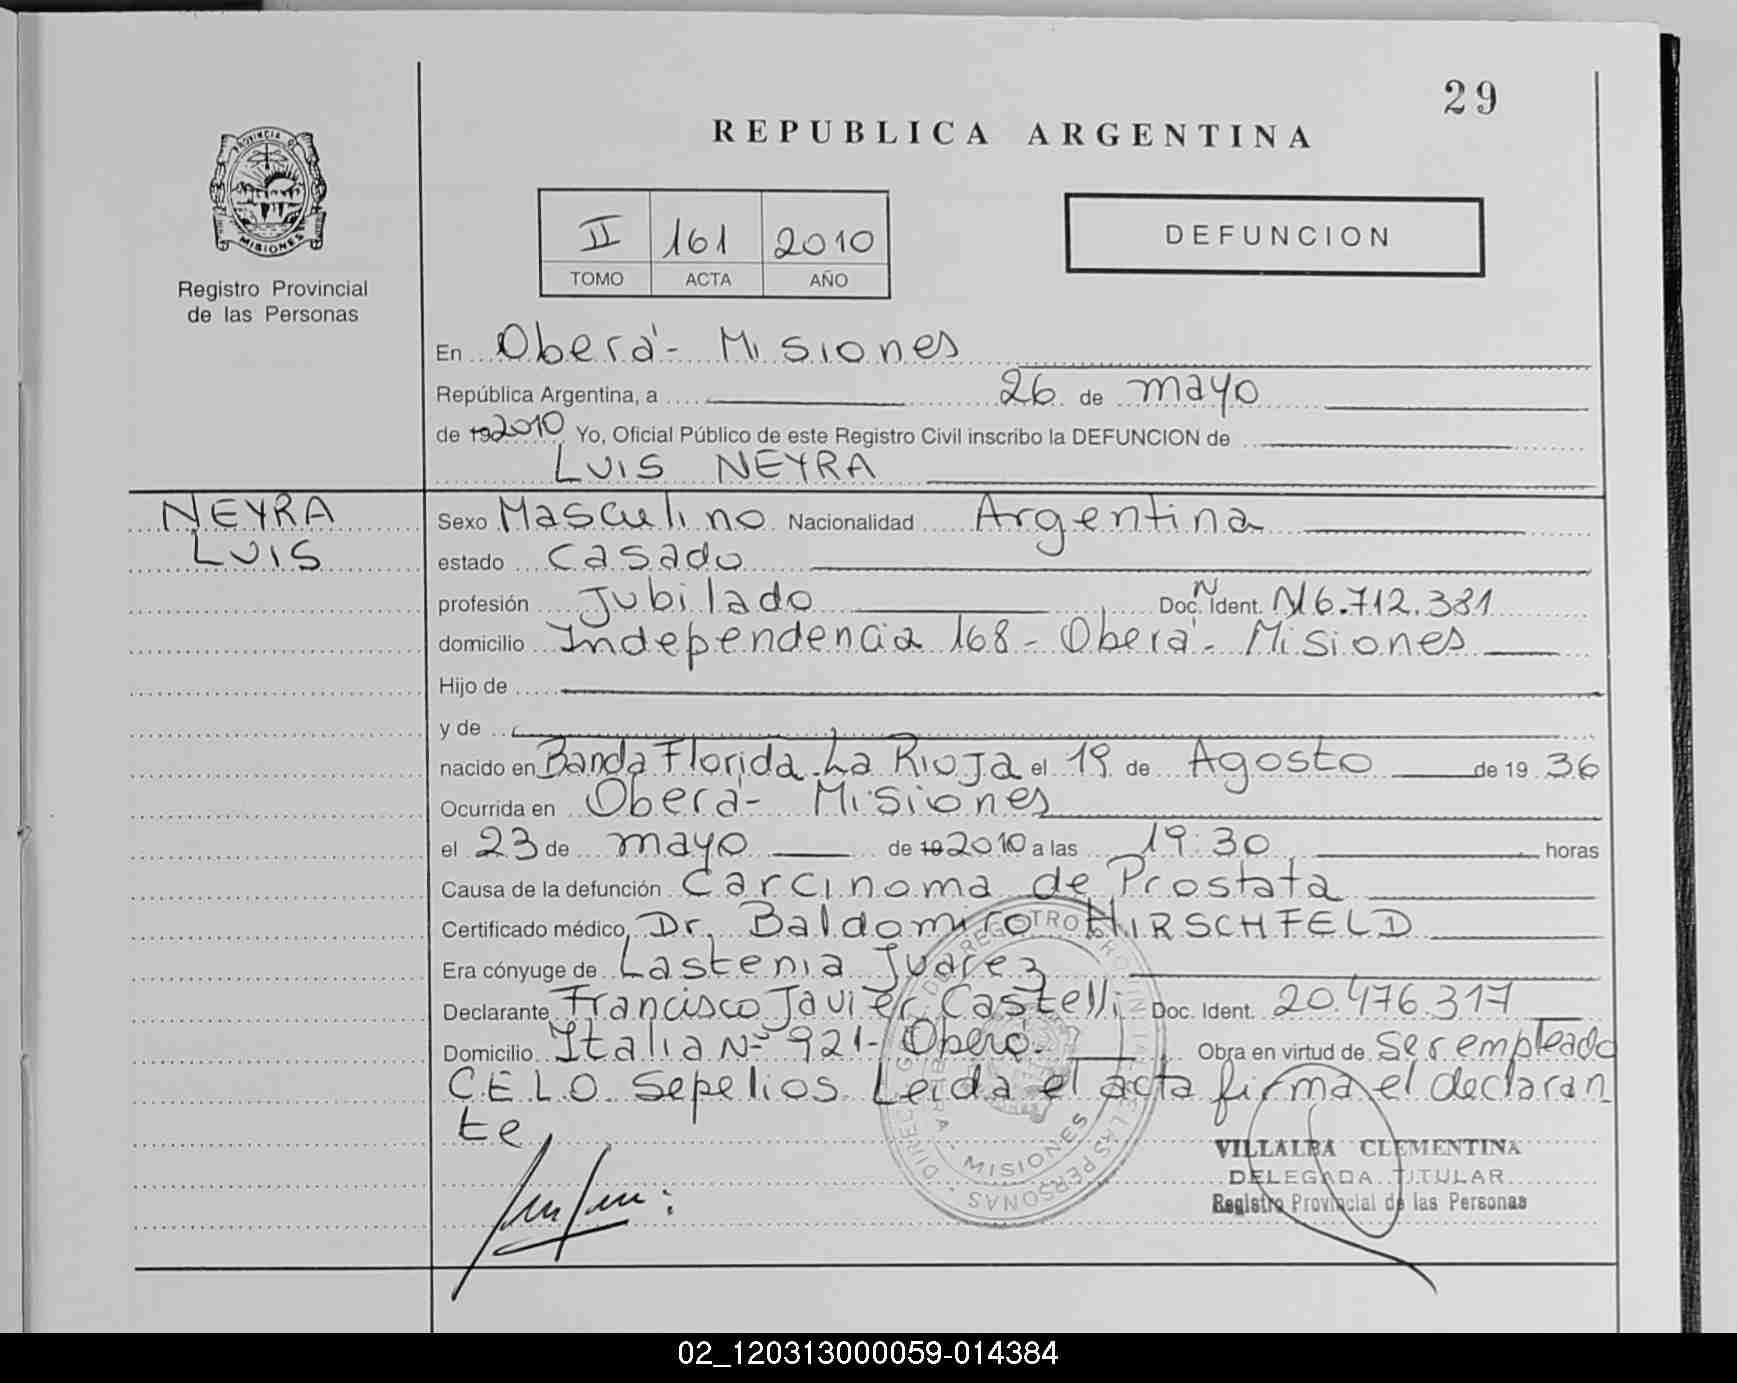 29
REPUBLICA ARGENTINA
PROVINCIA DE
MISIONES
Registro Provincial
de las Personas
II 161 2010
TOMO ACTA AÑO
DEFUNCION
En Oberá - Misiones
República Argentina, a 26 de mayo
de 19 2010 Yo, Oficial Público de este Registro Civil inscribo la DEFUNCION de
LUIS NEYRA
NEYRA
LUIS
Sexo Masculino Nacionalidad Argentina
estado Casado
profesión Jubilado Doc. Ident. N 6.712.381
domicilio Independencia 168 - Oberá - Misiones
Hijo de
y de
nacido en Banda Florida - La Rioja el 19 de Agosto de 19 36
Ocurrida en Oberá - Misiones
el 23 de mayo de 19 2010 a las 19:30 horas
Causa de la defunción Carcinoma de Prostata
Certificado médico Dr. Baldomiro HIRSCHFELD
Era cónyuge de Lastenia Juarez
Declarante Francisco Javier Castelli Doc. Ident. 20.476.317
Domicilio Italia Nº 921 - Oberá. Obra en virtud de Ser empleado
C.E.L.O. Sepelios. Leida el acta firma el declaran
te
MISIONES
VILLALBA CLEMENTINA
DELEGADA TITULAR
Registro Provincial de las Personas
02_120313000059-014384